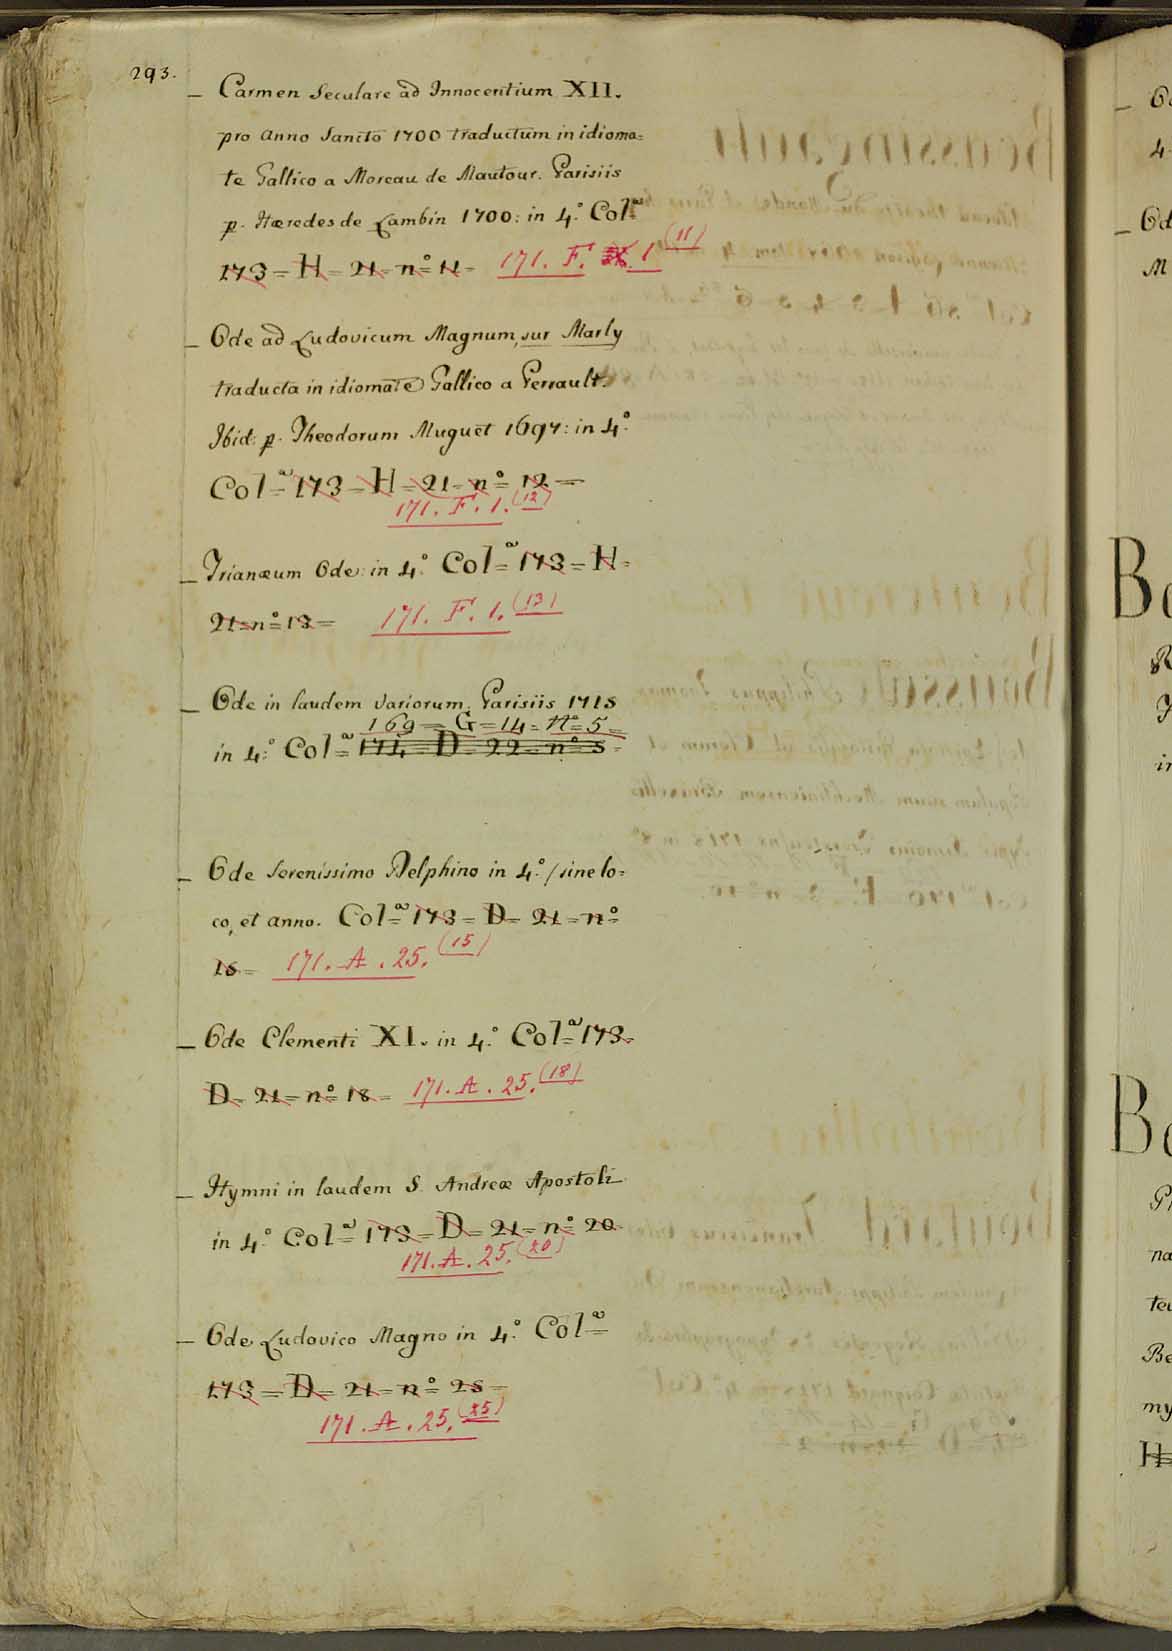 293.
– Carmen Seculare ad Innocentium XII.
pro Anno Sancto 1700 traductum in idioma=
te Gallico a Moreau de Mautour. Parisiis
p. Hæredes de Lambin 1700: in 4.º Col.ª
173 = H = 21 = nº 11 = 171. F. 1 (11)
– Ode ad Ludovicum Magnum, sur Marly
traducta in idiomate Gallico a Perrault.
Ibid: p. Theodorum Muguet 1697: in 4.º
Col.ª 173 = H = 21 = nº 12 =
171. F. 1. (12)
– Trianæum Ode: in 4.º Col.ª 173 = H =
21 = nº 13 = 171. F. 1. (13)
– Ode in laudem variorum. Parisiis 1715
169 = G = 14 = Nº 5 =
in 4.º Col.ª 174 = D = 22 = nº 5 =
– Ode Serenissimo Delphino in 4.º / sine lo=
co, et anno. Col.ª 173 = D = 21 = nº
15 = 171. A. 25. (15)
– Ode Clementi XI. in 4.º Col.ª 173 =
D = 21 = nº 18 = 171. A. 25. (18)
– Hymni in laudem S. Andreæ Apostoli
in 4.º Col.ª 173 = D = 21 = nº 20
171. A. 25. (20)
– Ode Ludovico Magno in 4.º Col.ª
173 = D = 21 = nº 25 =
171. A. 25. (25)